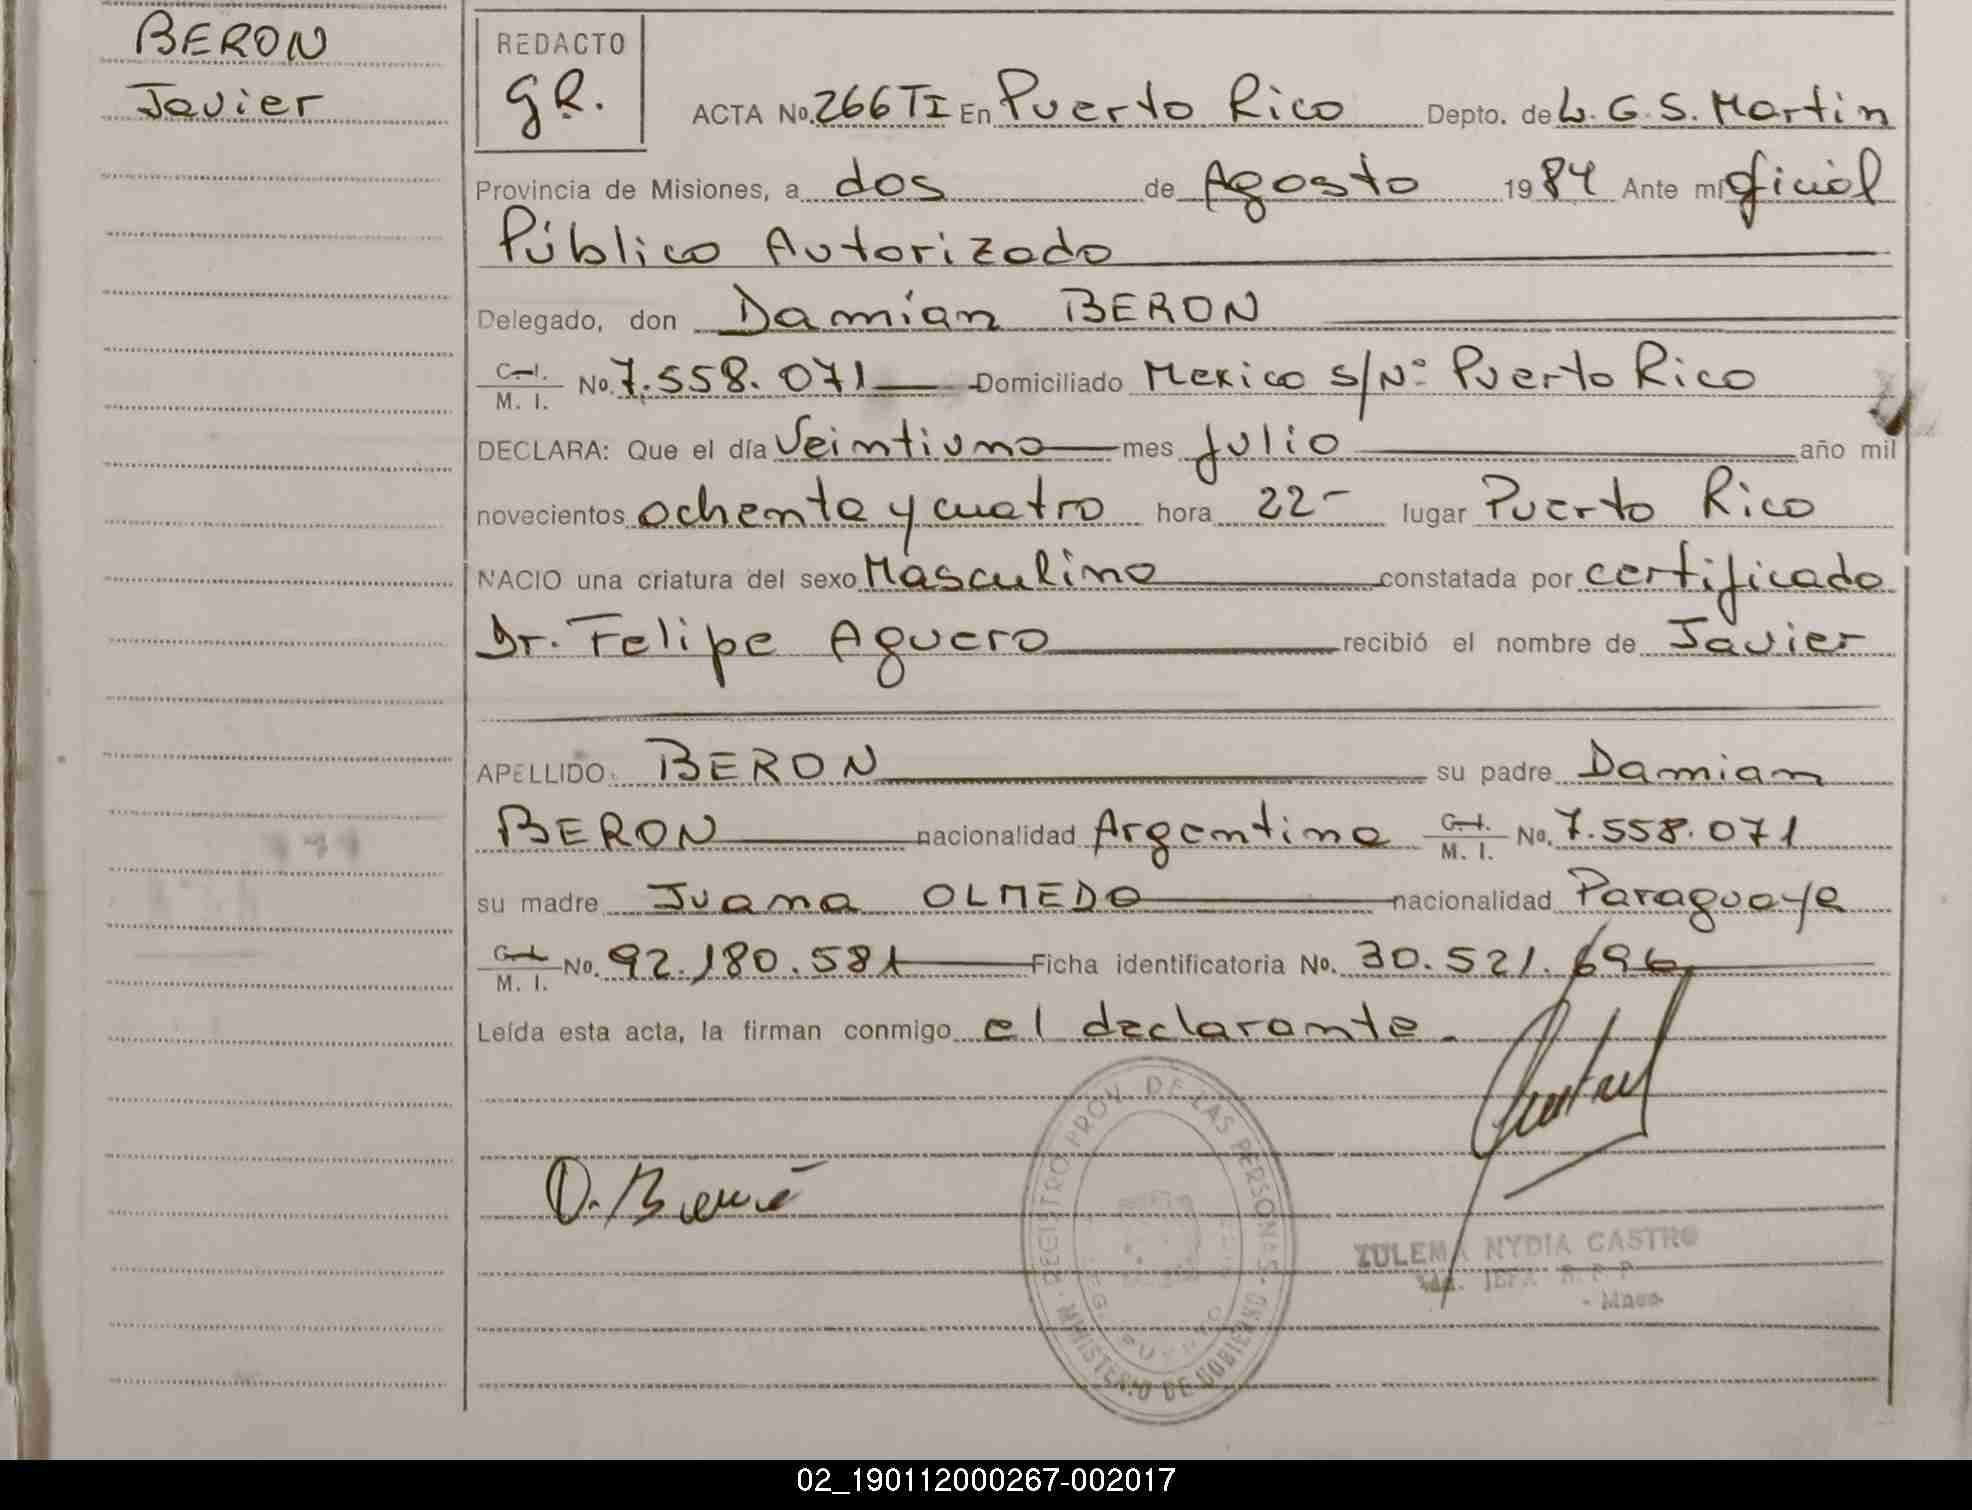 BERON
Javier
REDACTO
G.R.
ACTA No. 266 TI En Puerto Rico Depto. de L. G. S. Martin
Provincia de Misiones, a dos de Agosto 1984 Ante mí oficial
Público Autorizado
Delegado, don Damián BERON
C.I. M. I. No. 7.558.071 Domiciliado Mexico S/Nº Puerto Rico
DECLARA: Que el día Veintiuno mes Julio año mil
novecientos ochenta y cuatro hora 22- lugar Puerto Rico
NACIO una criatura del sexo Masculino constatada por certificado
Dr. Felipe Aguero recibió el nombre de Javier
APELLIDO: BERON su padre Damian
BERON nacionalidad Argentina C.I. M. I. No. 7.558.071
su madre Juana OLMEDO nacionalidad Paraguaya
C.I. M. I. No. 92.180.581 Ficha identificatoria No. 30.521.696
Leída esta acta, la firman conmigo el declarante.
REGISTRO PROV. DE LAS PERSONAS
MINISTERIO DE GOBIERNO
D. Beron
ZULEMA NYDIA CASTRO
02_190112000267-002017